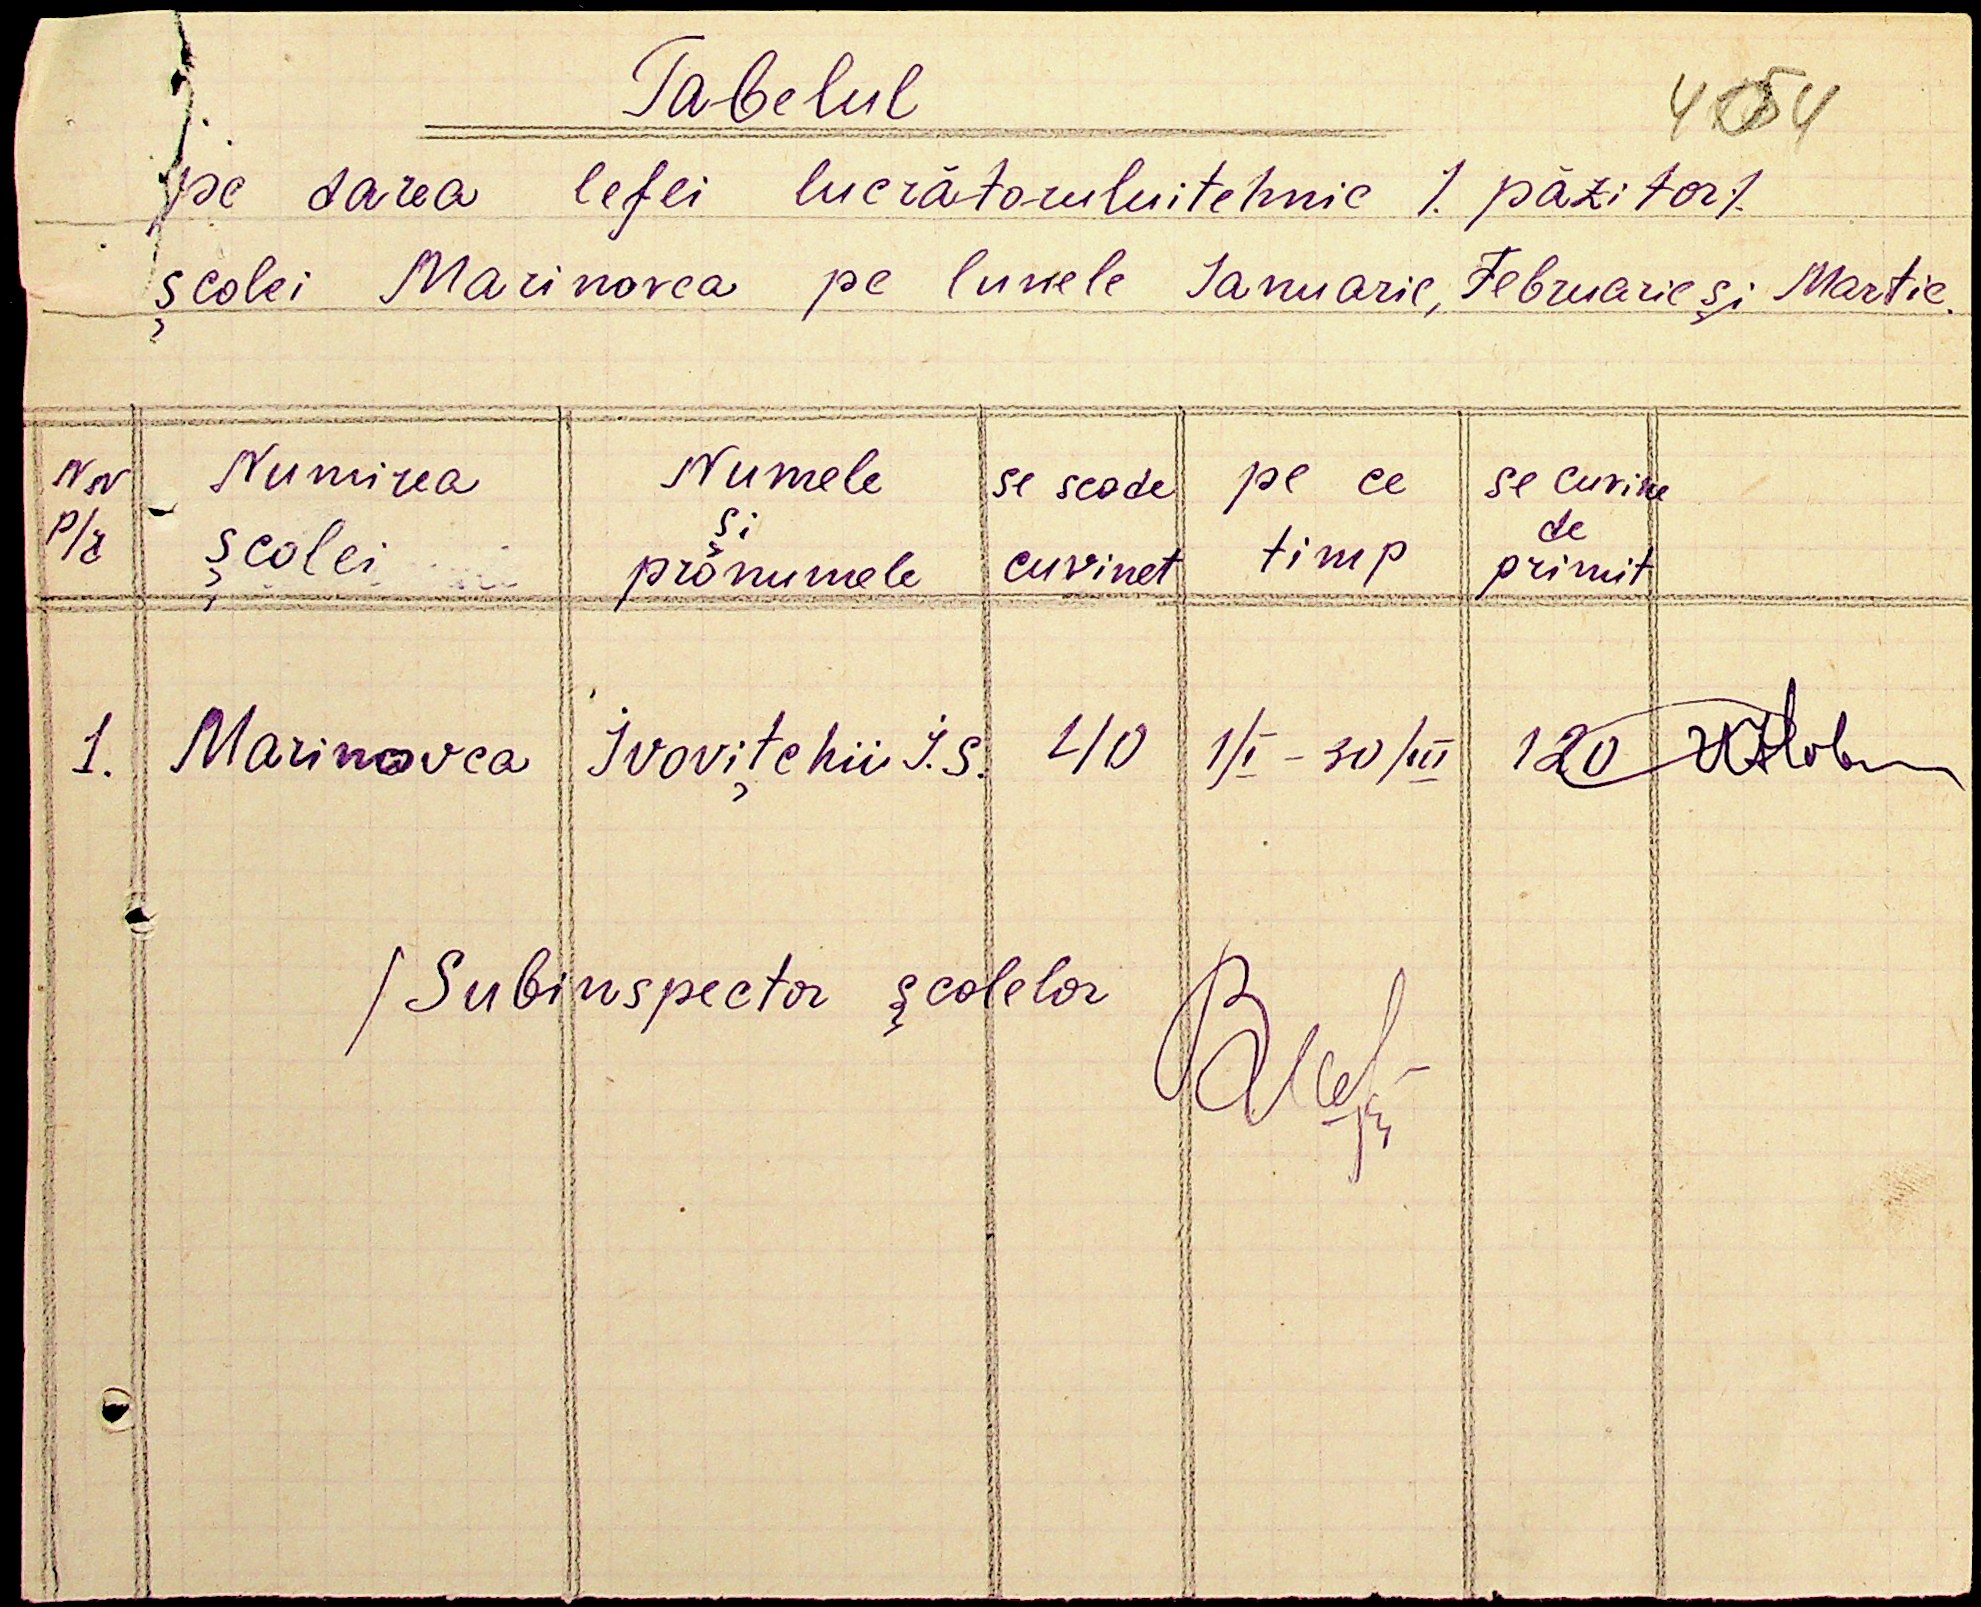 Tabelul
pe darea lefei lucrătoruluitehnic /. păzitor/.
școlei Marinovca pe lunele Ianuarie, Februarie și Martie.
NN p/r Numirea școlei Numele și pronumele se scade cuvinet pe ce timp se cuvine de primit
1. Marinovca Ivovițchii I.S. 40 1/I - 30/III 120
/ Subinspector școlelor